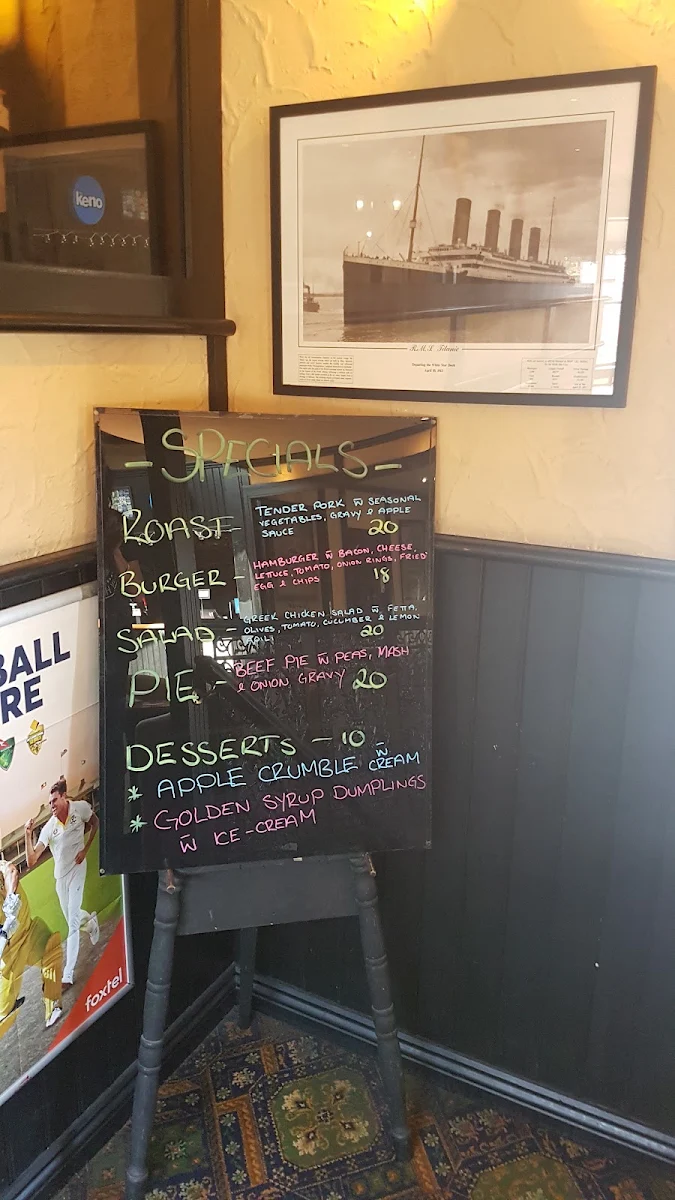 keno
R.M.S. Titanic
- SPECIALS -
ROAST - TENDER PORK W̄ SEASONAL
VEGETABLES, GRAVY & APPLE
SAUCE 20
BURGER - HAMBURGER W̄ BACON, CHEESE,
LETTUCE, TOMATO, ONION RINGS, FRIED
EGG & CHIPS 18
SALAD - GREEK CHICKEN SALAD W̄ FETTA,
OLIVES, TOMATO, CUCUMBER & LEMON
20
PIE - BEEF PIE W̄ PEAS, MASH
& ONION GRAVY 20
DESSERTS - 10 -
* APPLE CRUMBLE W̄ CREAM
* GOLDEN SYRUP DUMPLINGS
W̄ ICE-CREAM
BALL
RE
foxtel